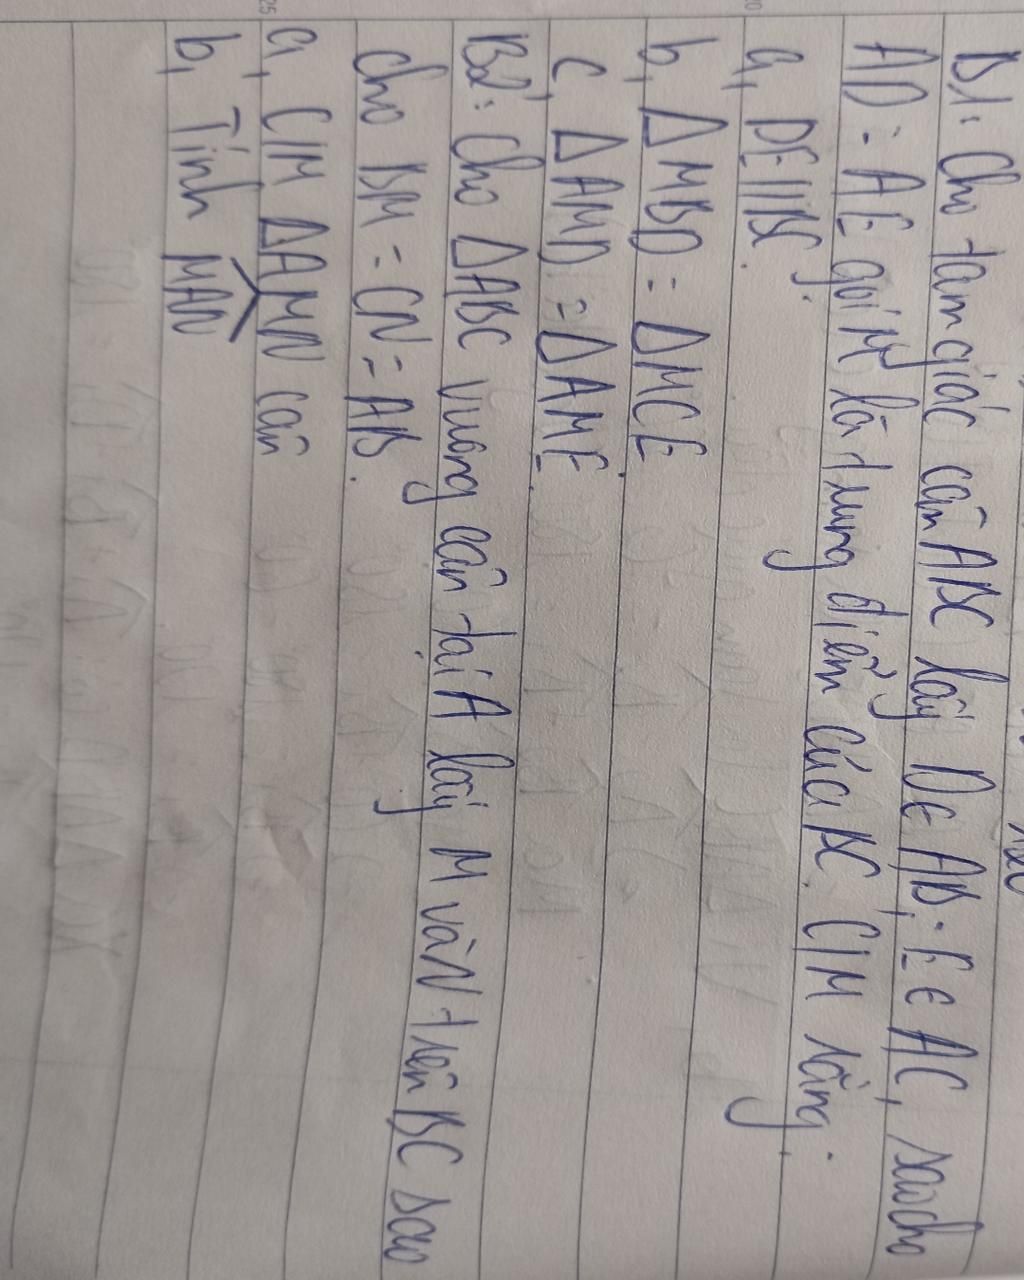 B1: Cho tam giác cân ABC lấy D∈ AB; E∈ AC, sao cho
AD = AE gọi M là trung điểm của BC. C/M rằng:
a, DE//BC.
b, ΔMBD = ΔMCE
c, ΔAMD = ΔAME.
B2: Cho ΔABC vuông cân tại A lấy M và N trên BC sao
cho BM = CN = AB.
a, C/M ΔAMN cân
b, Tính MAN
25